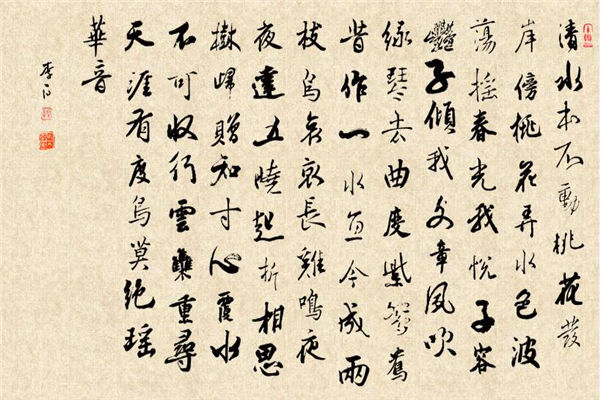 清水本不動桃花發
岸傍桃花弄水色波
蕩搖春光我悅子容
艷子傾我文章風吹
綠琴去曲度紫鴛鴦
昔作一水魚今成兩
枝鳥哀哀長雞鳴夜
夜達五曉起折相思
樹歸贈知寸心覆水
不可收行雲難重尋
天涯有度鳥莫絕瑤
華音
李白